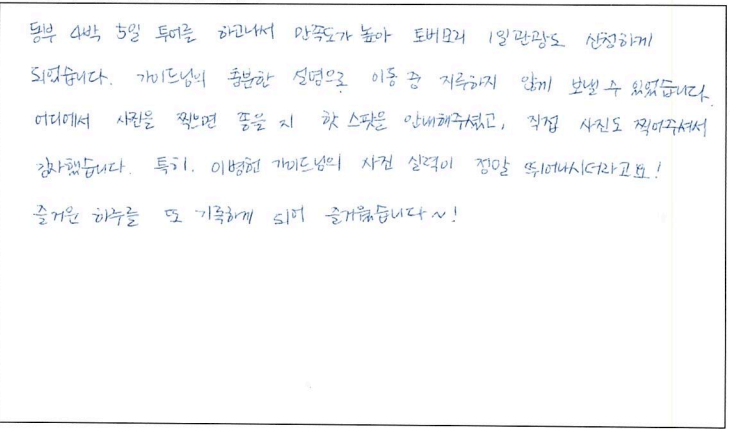 동부 4박 5일 투어를 하고나서 만족도가 높아 토버모리 1일관광도 신청하게
되었습니다. 가이드님의 충분한 설명으로 이동 중 지루하지 않게 보낼 수 있었습니다.
어디에서 사진을 찍으면 좋을 지 핫 스팟을 안내해주셨고, 직접 사진도 찍어주셔서
감사했습니다. 특히. 이병헌 가이드님의 사진 실력이 정말 뛰어나시더라고요!
즐거운 하루를 또 기록하게 되어 즐거웠습니다~!